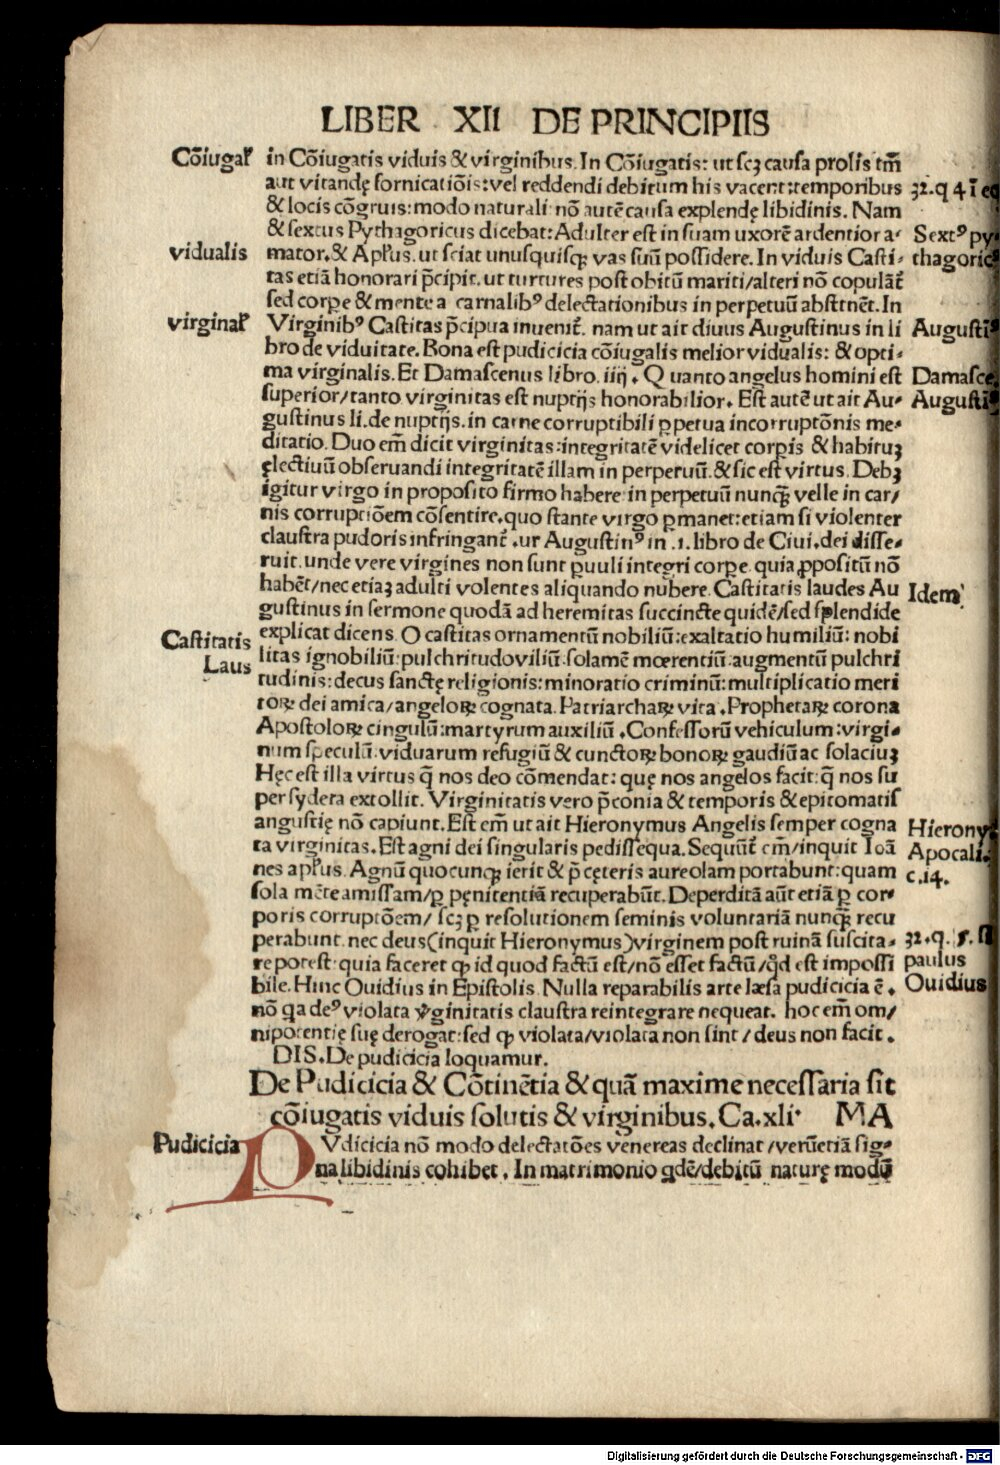 LIBER XII DE PRINCIPIIS
Cõiugaƚ
in Cõiugatis viduis & virginibus. In Cõiugatis: ut scꝫ causa prolis tm̃
aut vitandę fornicatiõis: vel reddendi debitum his vacent: temporibus
32. q 4 ĩ eq
& locis cõgruis: modo naturali nõ autẽ causa explendę libidinis. Nam
& sextus Pythagoricus dicebat: Adulter est in suam uxorẽ ardentior a-
Sextꝰ py
vidualis
mator. & Apƚus. ut sciat unusquisqꝫ vas suũ possidere. In viduis Casti-
thagoric
tas etiã honorari p̃cipit. ut turtures post obitũ mariti/alteri nõ copulãt̃
sed corpe & mente a carnalibꝰ delectationibus in perpetuũ abstinẽt. In
virginaƚ
Virginibꝰ Castitas p̃cipua invenit̃. nam ut ait divus Augustinus in li
Augusti
bro de viduitate. Bona est pudicicia cõiugalis melior vidualis: & opti-
ma virginalis. Et Damascenus libro. iiij. Quanto angelus homini est
Damasce
superior/tanto virginitas est nuptijs honorabilior. Est autẽ ut ait Au-
Augusti
gustinus li. de nuptijs. in carne corruptibili ꝑpetua incorruptõnis me-
ditatio. Duo em̃ dicit virginitas: integritatẽ videlicet corpis & habituꝫ
ęlectivũ observandi integritatẽ illam in perpetuũ. & sic est virtus. Debꝫ
igitur virgo in proposito firmo habere in perpetuũ nunqꝫ̃ velle in car/
nis corruptiõem cõsentire. quo stante virgo ꝑmanet: etiam si violenter
claustra pudoris infringant̃. ut Augustinꝰ in .1. libro de Civi. dei disse-
ruit. unde vere virgines non sunt ꝑvuli integri corpe. quia ꝓpositũ nõ
habẽt/nec etiaꝫ adulti volentes aliquando nubere. Castitatis laudes Au
Idem
gustinus in sermone quodã ad heremitas succincte quidẽ/sed splendide
Castitatis
explicat dicens. O castitas ornamentũ nobiliũ: exaltatio humiliũ: nobi
Laus
litas ignobiliũ: pulchritudo viliũ: solamẽ mœrentiũ: augmentũ pulchri
tudinis: decus sanctę religionis: minoratio criminũ: multiplicatio meri
toꝝ dei amica/angeloꝝ cognata. Patriarchaꝝ vita. Prophetaꝝ corona
Apostoloꝝ cingulũ: martyrum auxiliũ. Confessorũ vehiculum: virgi-
num speculũ: viduarum refugiũ & cunctoꝝ bonoꝝ gaudiũ ac solaciuꝫ
Hęc est illa virtus q̃ nos deo cõmendat: quę nos angelos facit: q̃ nos su
per sydera extollit. Virginitatis vero p̃conia & temporis & epitomatis
angustię nõ capiunt. Est em̃ ut ait Hieronymus Angelis semper cogna
Hierony
ta virginitas. Est agni dei singularis pedissequa. Sequũt̃ em̃/inquit Ioã
Apocali.
nes apƚus. Agnũ quocunqꝫ ierit & p̃ cęteris aureolam portabunt: quam
c. 14.
sola mẽte amissam/ꝑ pęnitentiã recuperabũt. Deperditã aũt etiã ꝑ cor-
poris corruptõem/ scꝫ ꝑ resolutionem seminis voluntariã nunqꝫ̃ recu
perabunt. nec deus (inquit Hieronymus) virginem post ruinã suscita-
32. q. 5.
re potest: quia faceret ꝙ id quod factũ est/nõ esset factũ/qđ est impossi
paulus
bile. Hinc Ouidius in Epistolis. Nulla reparabilis arte læsa pudicicia ẽ.
Ouidius
nõ ꝗa deꝰ violata v̾ginitatis claustra reintegrare nequeat. hoc em̃ om/
nipotentię suę derogat: sed ꝙ violata/violata non sint/deus non facit.
DIS. De pudicicia loquamur.
De Pudicicia & Cõtinẽtia & quã maxime necessaria sit
cõiugatis viduis solutis & virginibus. Ca. xli. MA
Pudicicia
PVdicicia nõ modo delectatões venereas declinat/verũetiã sig-
na libidinis cohibet. In matrimonio ꝗdẽ/debitũ naturę modũ
Digitalisierung gefördert durch die Deutsche Forschungsgemeinschaft - DFG